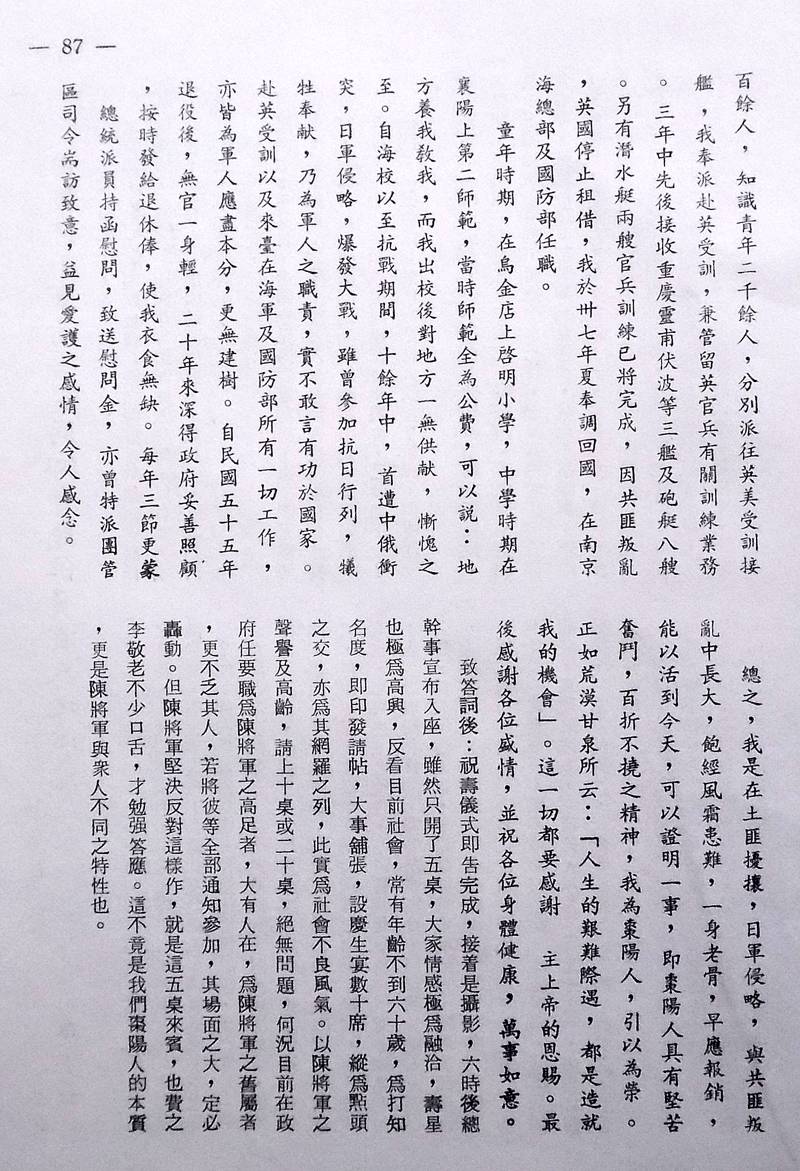 — 87 —
百餘人，知識青年二千餘人，分別派往英美受訓接
艦，我奉派赴英受訓，兼管留英官兵有關訓練業務
。三年中先後接收重慶靈甫伏波等三艦及砲艇八艘
。另有潛水艇兩艘官兵訓練已將完成，因共匪叛亂
，英國停止租借，我於卅七年夏奉調回國，在南京
海總部及國防部任職。
童年時期，在烏金店上啓明小學，中學時期在
襄陽上第二師範，當時師範全為公費，可以說：地
方養我教我，而我出校後對地方一無供献，慚愧之
至。自海校以至抗戰期間，十餘年中，首遭中俄衝
突，日軍侵略，爆發大戰，雖曾參加抗日行列，犧
牲奉献，乃為軍人之職責，實不敢言有功於國家。
赴英受訓以及來臺在海軍及國防部所有一切工作，
亦皆為軍人應盡本分，更無建樹。自民國五十五年
退役後，無官一身輕，二十年來深得政府妥善照顧
，按時發給退休俸，使我衣食無缺。每年三節更蒙
總統派員持函慰問，致送慰問金，亦曾特派團管
區司令耑訪致意，益見愛護之感情，令人感念。
總之，我是在土匪擾攘，日軍侵略，與共匪叛
亂中長大，飽經風霜患難，一身老骨，早應報銷，
能以活到今天，可以證明一事，即棗陽人具有堅苦
奮鬥，百折不撓之精神，我為棗陽人，引以為榮。
正如荒漠甘泉所云：「人生的艱難際遇，都是造就
我的機會」。這一切都要感謝　主上帝的恩賜。最
後感謝各位盛情，並祝各位身體健康，萬事如意。
致答詞後：祝壽儀式即告完成，接着是攝影，六時後總
幹事宣布入座，雖然只開了五桌，大家情感極爲融洽，壽星
也極爲高興，反看目前社會，常有年齡不到六十歲，爲打知
名度，即印發請帖，大事舖張，設慶生宴數十席，縱爲點頭
之交，亦爲其網羅之列，此實爲社會不良風氣。以陳將軍之
聲譽及高齡，請上十桌或二十桌，絕無問題，何況目前在政
府任要職爲陳將軍之高足者，大有人在，爲陳將軍之舊屬者
，更不乏其人，若將彼等全部通知參加，其場面之大，定必
轟動。但陳將軍堅決反對這樣作，就是這五桌來賓，也費之
李敬老不少口舌，才勉强答應。這不竟是我們棗陽人的本質
，更是陳將軍與衆人不同之特性也。